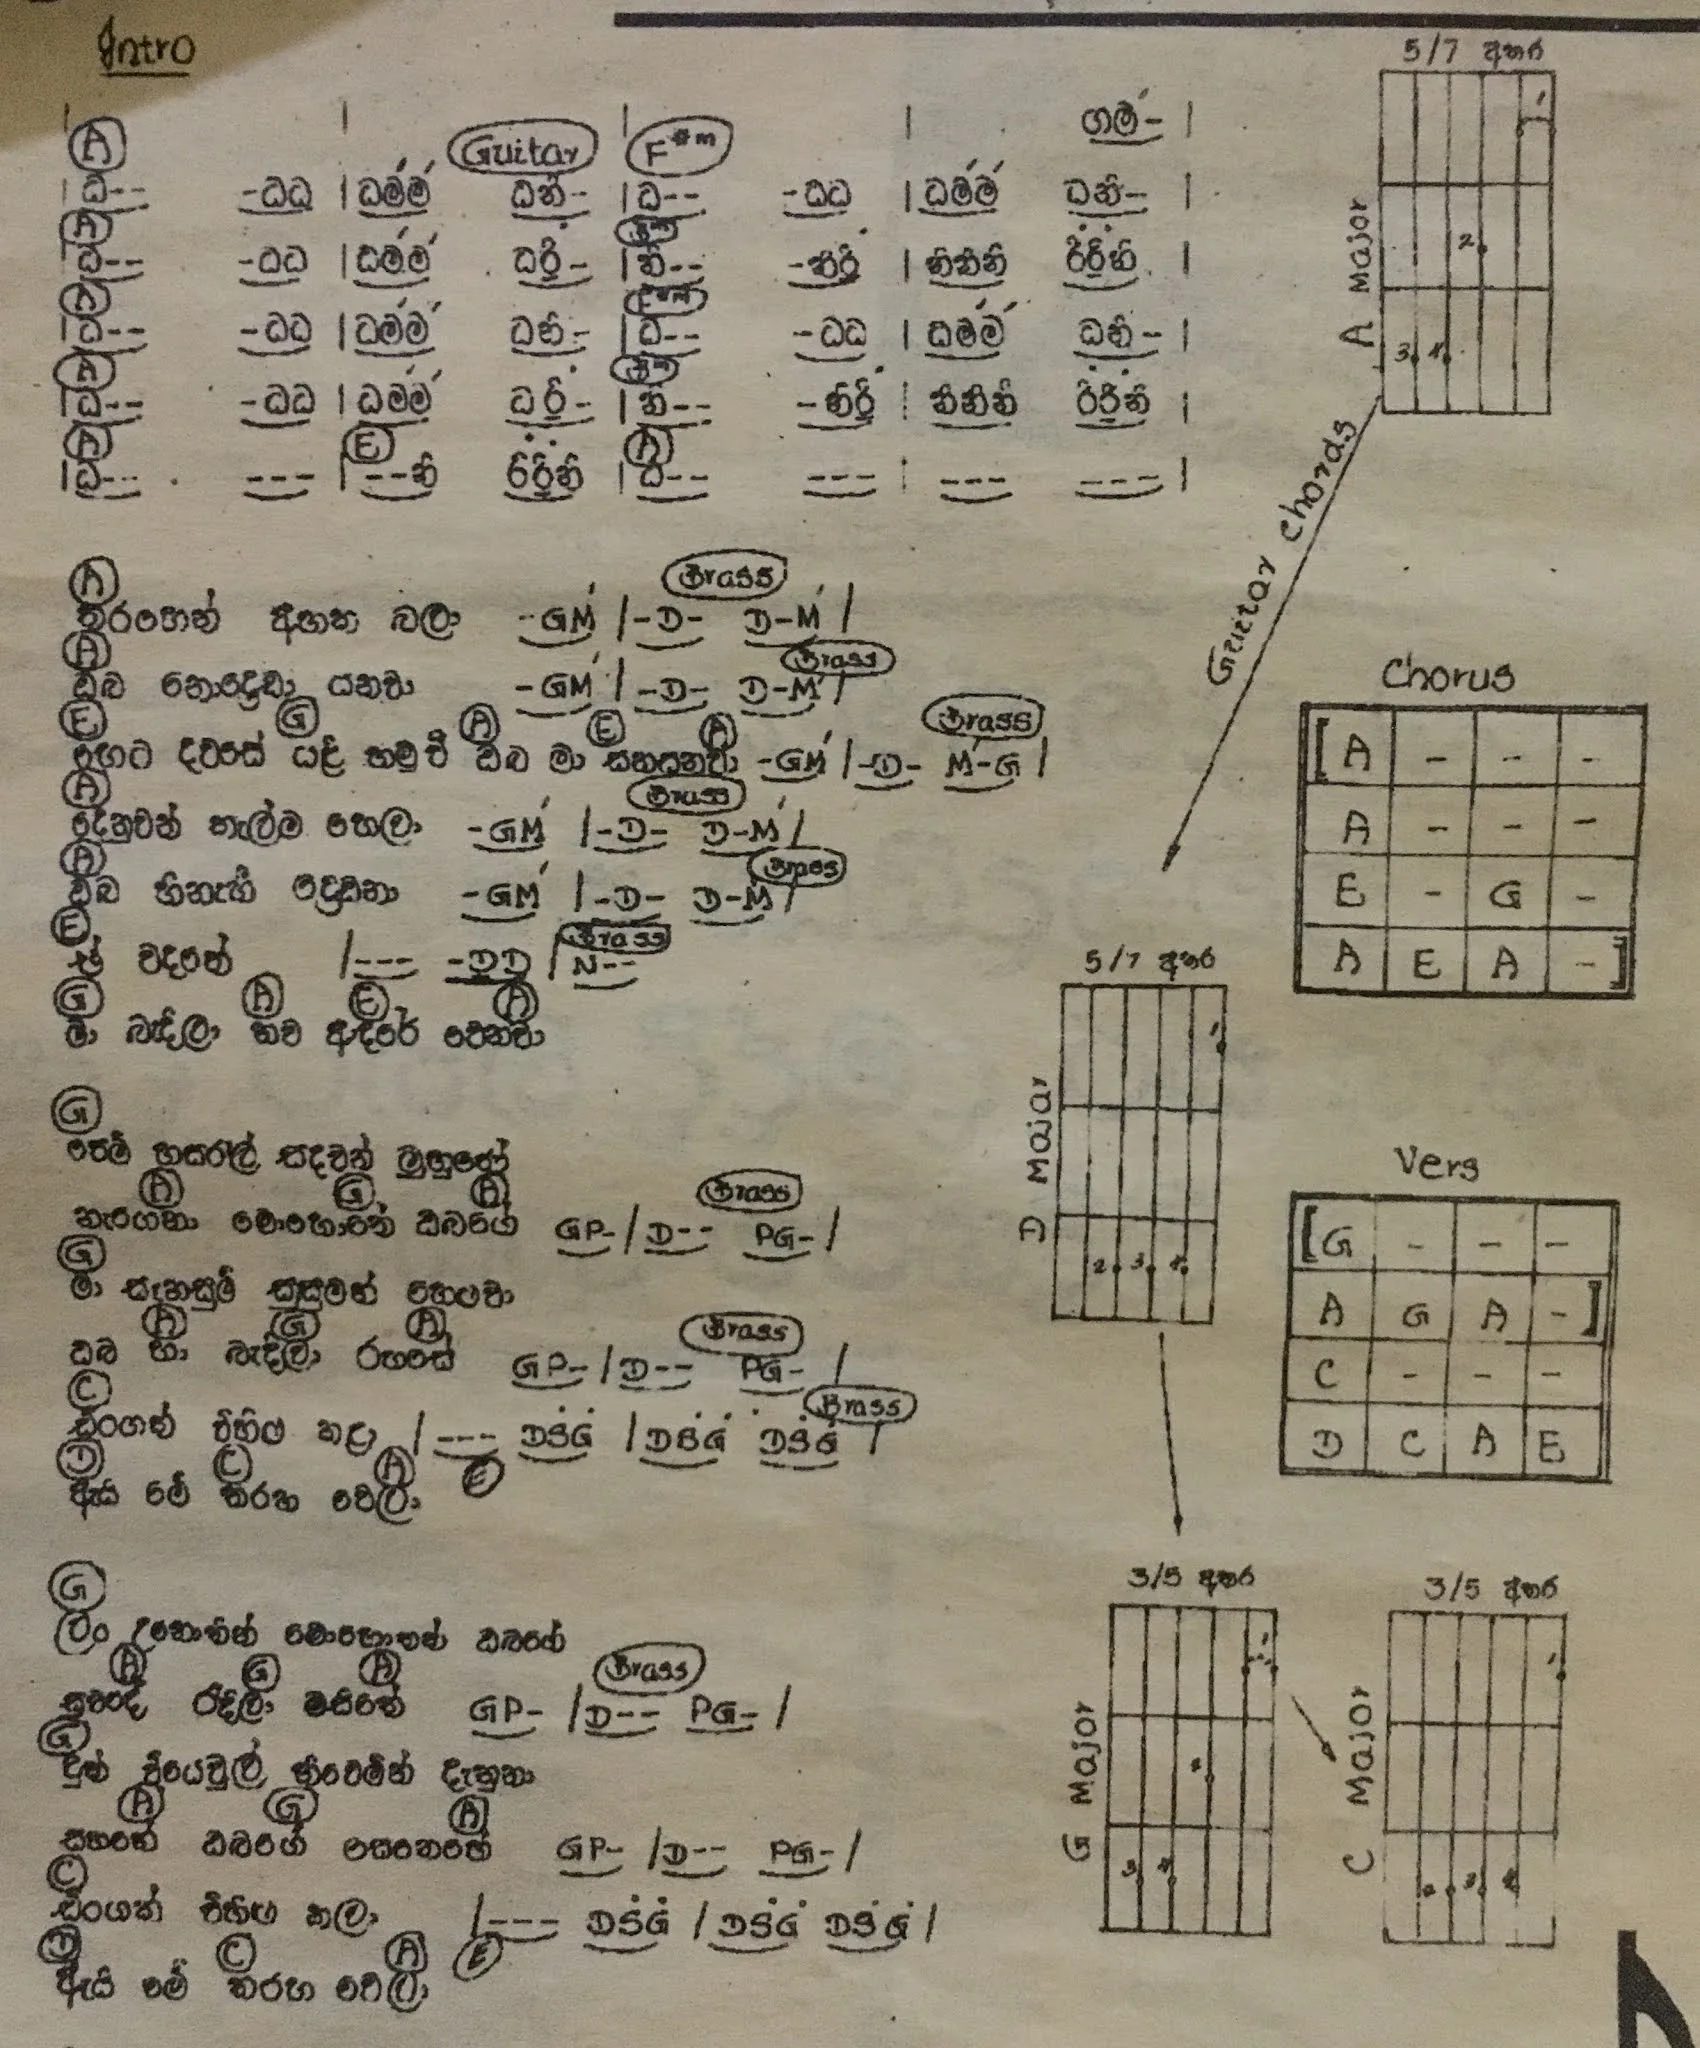 Intro
ගම́-
A Guitar F#m
| ධ-- -ධධ | ධම́ම́ ධනි- | ධ-- -ධධ | ධම́ම́ ධනි- |
A
| ධ-- -ධධ | ධම́ම́ ධරි- | නි-- -නිරි | නිනිනි රිරිනි |
A F#m
| ධ-- -ධධ | ධම́ම́ ධනි- | ධ-- -ධධ | ධම́ම́ ධනි- |
A
| ධ-- -ධධ | ධම́ම́ ධරි- | නි-- -නිරි | නිනිනි රිරිනි |
A E A
| ධ-- --- | --නි රිරිනි | ධ-- --- | --- --- |
A Brass
තරහෙන් අහක බලා -GḾ |-D- D-Ḿ |
A Brass
ඔබ නොදොඩා යනවා -GḾ |-D- D-Ḿ |
E G A E A Brass
දවසේ යළි හමුවී ඔබ මා සනසනවා -GḾ |-D- Ḿ-G |
A Brass
දෙනුවන් හැල්ම හෙලා -GḾ |-D- D-Ḿ |
A Brass
ඔබ හිනැහී දොඩනා -GḾ |-D- D-Ḿ |
E Brass
ඒ වදනේ |--- -DD | N--
G A E A
මා බැඳිලා තව ආදරේ වෙනවා
G
පෙම් හසරැල් සඳවත් මුහුණේ
A G A Brass
නැගෙනා මොහොතේ ඔබගේ GP- | D-- PG- |
G
මා සැනසුම් සුසුමන් හෙළවා
A G A Brass
ඔබ හා බැඳිලා රහසේ GP- | D-- PG- |
C Brass
විහිළු කළා |--- DṠĠ | DṠĠ DṠĠ |
D C A E
ඇයි මේ තරහ වෙලා
G
ළං උනොතින් මොහොතක් ඔබගේ
A G A Brass
සුවඳේ රැඳිලා මසිතේ GP- | D-- PG- |
G
දුන් වියෙවුල් නිවෙමින් දැනුනා
A G A
සහනේ ඔබගේ සෙනෙහේ GP- | D-- PG- |
C
විහිළු කලා |--- DṠĠ | DṠĠ DṠĠ |
D C A E
ඇයි මේ තරහ වෙලා
5/7 අතර
1
2
3 4
A Major
Guitar chords
Chorus
[ A - - -
A - - -
E - G -
A E A - ]
5/7 අතර
1
2 3 4
D Major
Vers
[ G - - -
A G A - ]
C - - -
D C A E
3/5 අතර
1
2
3 4
G Major
3/5 අතර
1
2 3 4
C Major